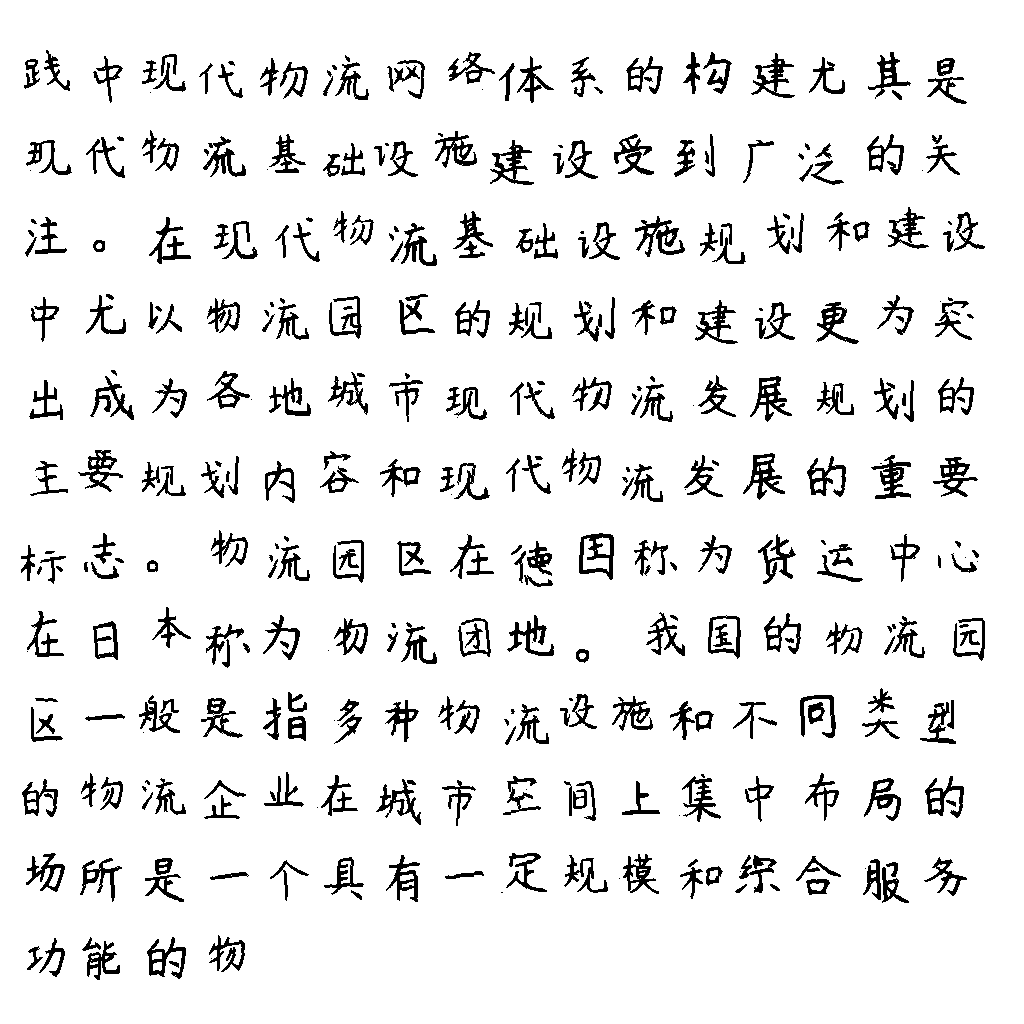 践中现代物流网络体系的构建尤其是
现代物流基础设施建设受到广泛的关
注。在现代物流基础设施规划和建设
中尤以物流园区的规划和建设更为突
出成为各地城市现代物流发展规划的
主要规划内容和现代物流发展的重要
标志。物流园区在德国称为货运中心
在日本称为物流团地。我国的物流园
区一般是指多种物流设施和不同类型
的物流企业在城市空间上集中布局的
场所是一个具有一定规模和综合服务
功能的物